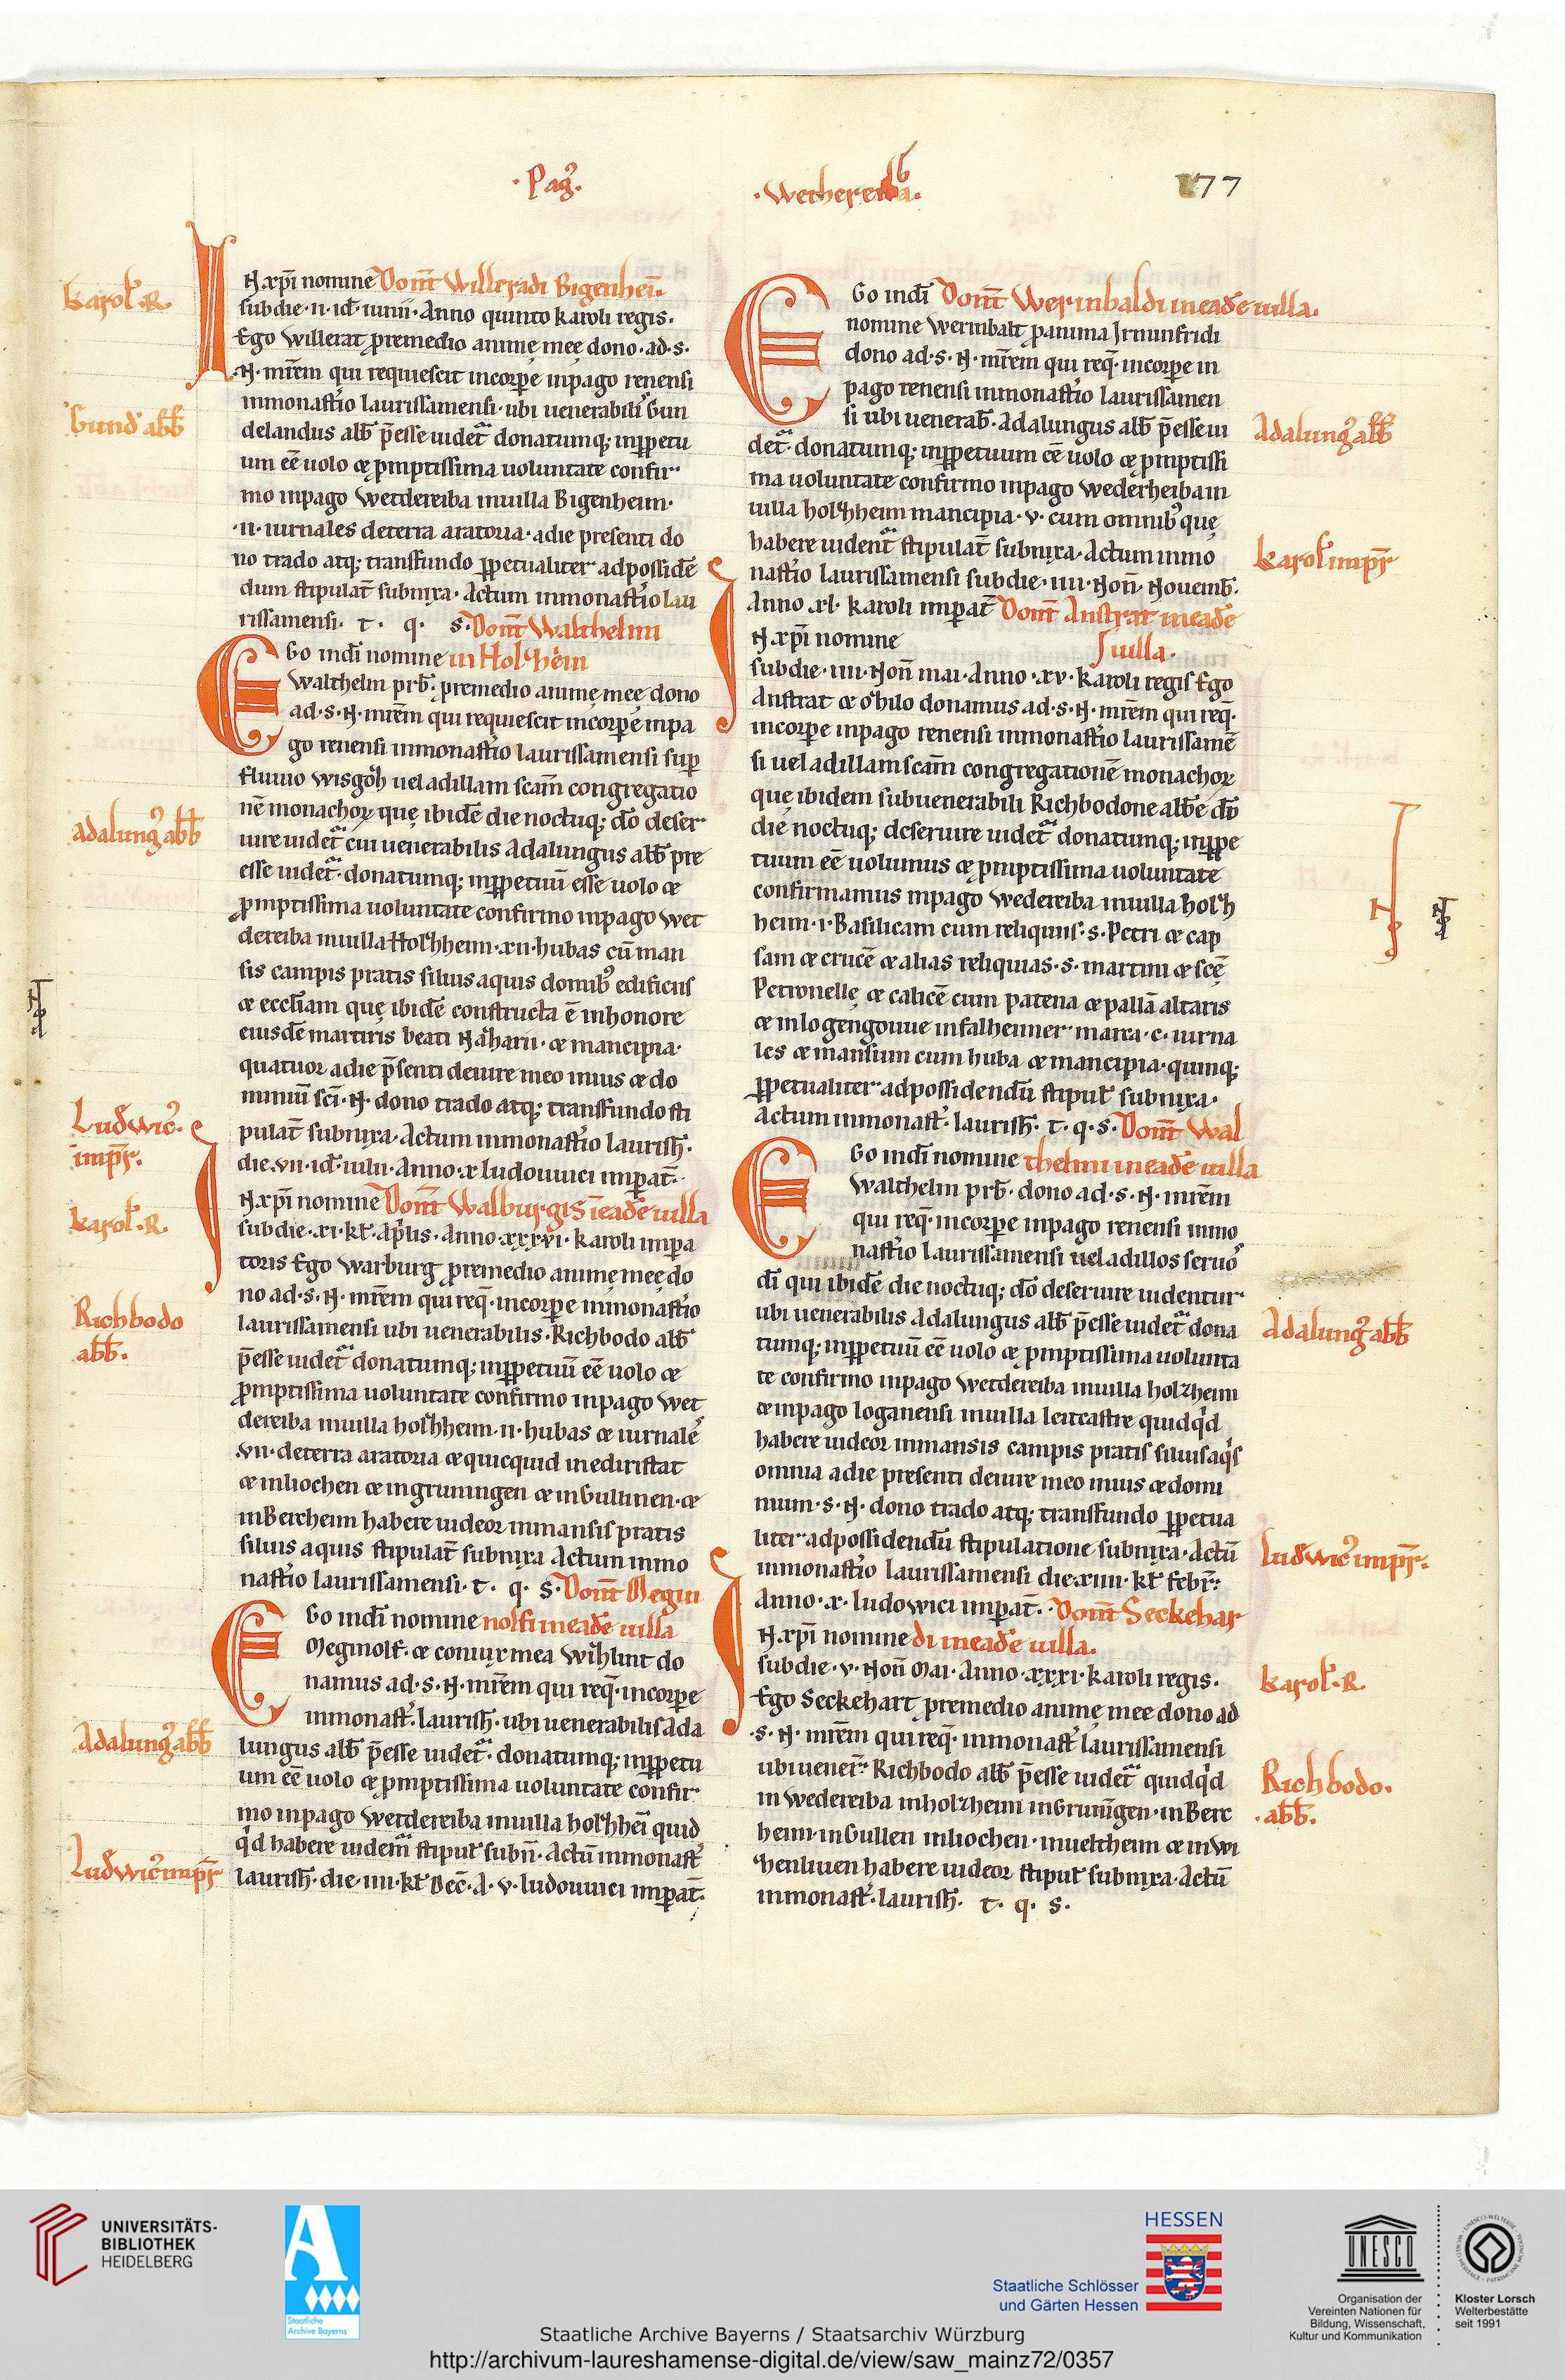 ·Pag᷒.
·Wethereiba.
177
Karol᷒·R·
IN xp̄i nomine Donat̄ Willeradi Bigenhei͞·
sub die·ii·id̄·iunii·Anno quinto karoli regis·
Ego Willerat p̱remedio animę meę dono·ad·s·
·N·mr̄em qui requiescit incorp̱e inpago renensi
inmonast᷒io laurissamensi·ubi uenerabili᷒ Gun
Gund᷒ abb̄
delandus abb̄ p̄esse uidet᷒ donatumq; inp̱petu
um ee͞ uolo & p̱mptissima uoluntate confir
mo inpago Wetdereiba inuilla Bigenheim·
·ii·iurnales deterra aratoria·adie presenti do
no trado atq; transfundo p̱petualiter adpossidē
dum stipulat̄ subnixa·Actum inmonast᷒io lau
rissamensi· t· q· s· Donat̄ Walthelmi
EGo indī nomine in Holzheim
Walthelm prb̄· p̱remedio animę meę dono
ad·s·N·mr̄em qui requiescit incorp̱e inpa
go renensi inmonast᷒io laurissamensi sup̱
fluuio wisgoz uel adillam sc̄am congregatio
nē monachoꝝ quę ibidē die noctuq; dō deser
Adalung᷒ abb̄
uire uidet᷒ cui uenerabilis Adalungus abb̄ pre
esse uidet᷒· donatumq; inp̱petuū esse uolo &
p̱mptissima uoluntate confirmo inpago Wet
dereiba inuilla Holzheim·xii·hubas cū man
sis campis pratis siluis aquis domib᷒ edificiis
& eccl̄iam quę ibidē constructa ē inhonore
eiusdē martiris beati Nazarii·& mancipia·
quatuor adie p̄senti deiure meo inius & do
miniū sc̄i·N·dono trado atq; transfundo sti
Ludwic᷒·
imp̱r̄·
pulat̄ subnixa·Actum inmonast᷒io laurish̄·
die·vii·id̄·iulii·Anno·x·ludouuici imp̱at̄·
Karol᷒·R·
IN xp̄i nomine Donat̄ Walburgis iēadē uilla
sub die·xi·kl̄·ap̱lis·Anno·xxxvi·karoli imp̱a
toris Ego Warburg p̱remedio animę meę do
no ad·s·N·mr̄em qui req̄·incorp̱e inmonast᷒io
Richbodo
abb̄·
laurissamensi ubi uenerabilis·Richbodo abb̄
p̄esse uidet᷒ donatumq; inp̱petuū ee͞ uolo &
p̱mptissima uoluntate confirmo inpago Wet
dereiba inuilla holzheim·ii·hubas & iurnale᷒
·vii·deterra aratoria & quicquid inediristat
& inhochen & ingruningen & inGullinen·&
inBercheim habere uideor inmansis pratis
siluis aquis stipulat̄ subnixa Actum inmo
nast᷒io laurissamensi· t· q· s· Donat̄ Megin
EGo indī nomine nolfi ineadē uilla
Meginolf·& coniux mea Wihlint do
namus ad·s·N·mr̄em qui req̄·incorp̱e
inmonast᷒·laurish̄·ubi uenerabilis Ada
Adalung᷒ abb̄
lungus abb̄ p̄esse uidet᷒· donatumq; inp̱petu
um ee͞ uolo & p̱mptissima uoluntate confir
mo inpago Wetdereiba inuilla holzhei͞ quid
q͑d habere uidem᷒ stipul᷒ subn̄·Actū inmonast᷒
Ludwic᷒ imp̱r̄
laurish̄·die·iiii·kl̄ Dec̄·A·v·ludouuici imp̱at̄·
EGo indī Donat̄ Werinbaldi ineadē uilla·
nomine Werinbalt p̱anima Irminfridi
dono ad·s·N·mr̄em qui req̄·incorp̱e in
pago renensi inmonast᷒io laurissamen
si ubi uenerab̄·Adalungus abb̄ p̄esse ui
Adalung᷒ abb̄
det᷒·donatumq; inp̱petuum ee͞ uolo & p̱mptissi
ma uoluntate confirmo inpago Wederheiba in
uilla holzheim mancipia·v·cum omnib᷒ que
habere uident᷒ stipulat̄ subnixa·Actum inmo
Karol᷒ imp̱r̄
nast᷒io laurissamensi sub die·iiii·Non̄·Nouemb̄·
Anno·xl·karoli imp̱at̄ Donat̄ Anstrat ineadē
IN xp̄i nomine uilla·
sub die·iiii·Non̄ mai·Anno·xv·karoli regis Ego
Anstrat & obilo donamus ad·s·N·mr̄em qui req̄·
incorp̱e inpago renensi inmonast᷒io laurissamē
si uel adillam sc̄am congregationē monachoꝝ
quę ibidem subuenerabili Richbodone abb̄e dō
die noctuq; deseruire uidet᷒ donatumq; inp̱pe
tuum ee͞ uolumus & p̱mptissima uoluntate
confirmamus inpago Wedereiba inuilla holz
heim·i·Basilicam cum reliquiis·s·Petri & cap
sam & crucē & alias reliquias·s·martini & sc̄ę
Petronellę & calicē cum patena & pallā altaris
& inlogengouue infalheimer marca·c·iurna
les & mansum cum huba & mancipia·quinq;
p̱petualiter adpossidendū stipul᷒ subnixa·
Actum inmonast᷒·laurish̄· t·q·s· Donat̄ Wal
EGo indī nomine thelmi ineadē uilla
Walthelm prb̄·dono ad·s·N·mr̄em
qui req̄·incorp̱e inpago renensi inmo
nast᷒io laurissamensi uel adillos seruo᷒
dī qui ibidē die noctuq; dō deseruire uidentur
ubi uenerabilis Adalungus abb̄ p̄esse uidet᷒ dona
Adalung᷒ abb̄
tumq; inp̱petuū ee͞ uolo & p̱mptissima uolunta
te confirmo inpago Wetdereiba inuilla holzheim
& inpago loganensi inuilla leitcastre quidq͑d
habere uideor inmansis campis pratis siluis aq͑s
omnia adie presenti deiure meo inius & domi
nium·s·N·dono trado atq; transfundo p̱petua
liter adpossidendū stipulatione subnixa·Actū
Ludwic᷒ imp̱r̄·
inmonast᷒io laurissamensi die·xiiii·kl̄ febr̄·
Anno·x·ludowici imp̱at̄· Donat̄ Seckehar
IN xp̄i nomine di ineadē uilla·
sub die·v·Non̄ Mai·Anno·xxxi·karoli regis·
Karol᷒·R·
Ego Seckehart p̱remedio animę meę dono ad
·s·N·mr̄em qui req̄·inmonast᷒ laurissamensi
ubi uener̄·Richbodo abb̄ p̄esse uidet᷒ quidq͑d
Richbodo·
·abb̄·
in wedereiba inholzheim inGruningen·inBerc
heim·inGullen inhochen·inueltheim & inWi
zhenhuen habere uideor stipul᷒ subnixa·Actū
inmonast᷒·laurish̄· t· q· s·
UNIVERSITÄTS-
BIBLIOTHEK
HEIDELBERG
Staatliche
Archive Bayerns
Staatliche Schlösser
und Gärten Hessen
HESSEN
UNESCO
Organisation der
Vereinten Nationen für
Bildung, Wissenschaft,
Kultur und Kommunikation
Kloster Lorsch
Welterbestätte
seit 1991
Staatliche Archive Bayerns / Staatsarchiv Würzburg
http://archivum-laureshamense-digital.de/view/saw_mainz72/0357